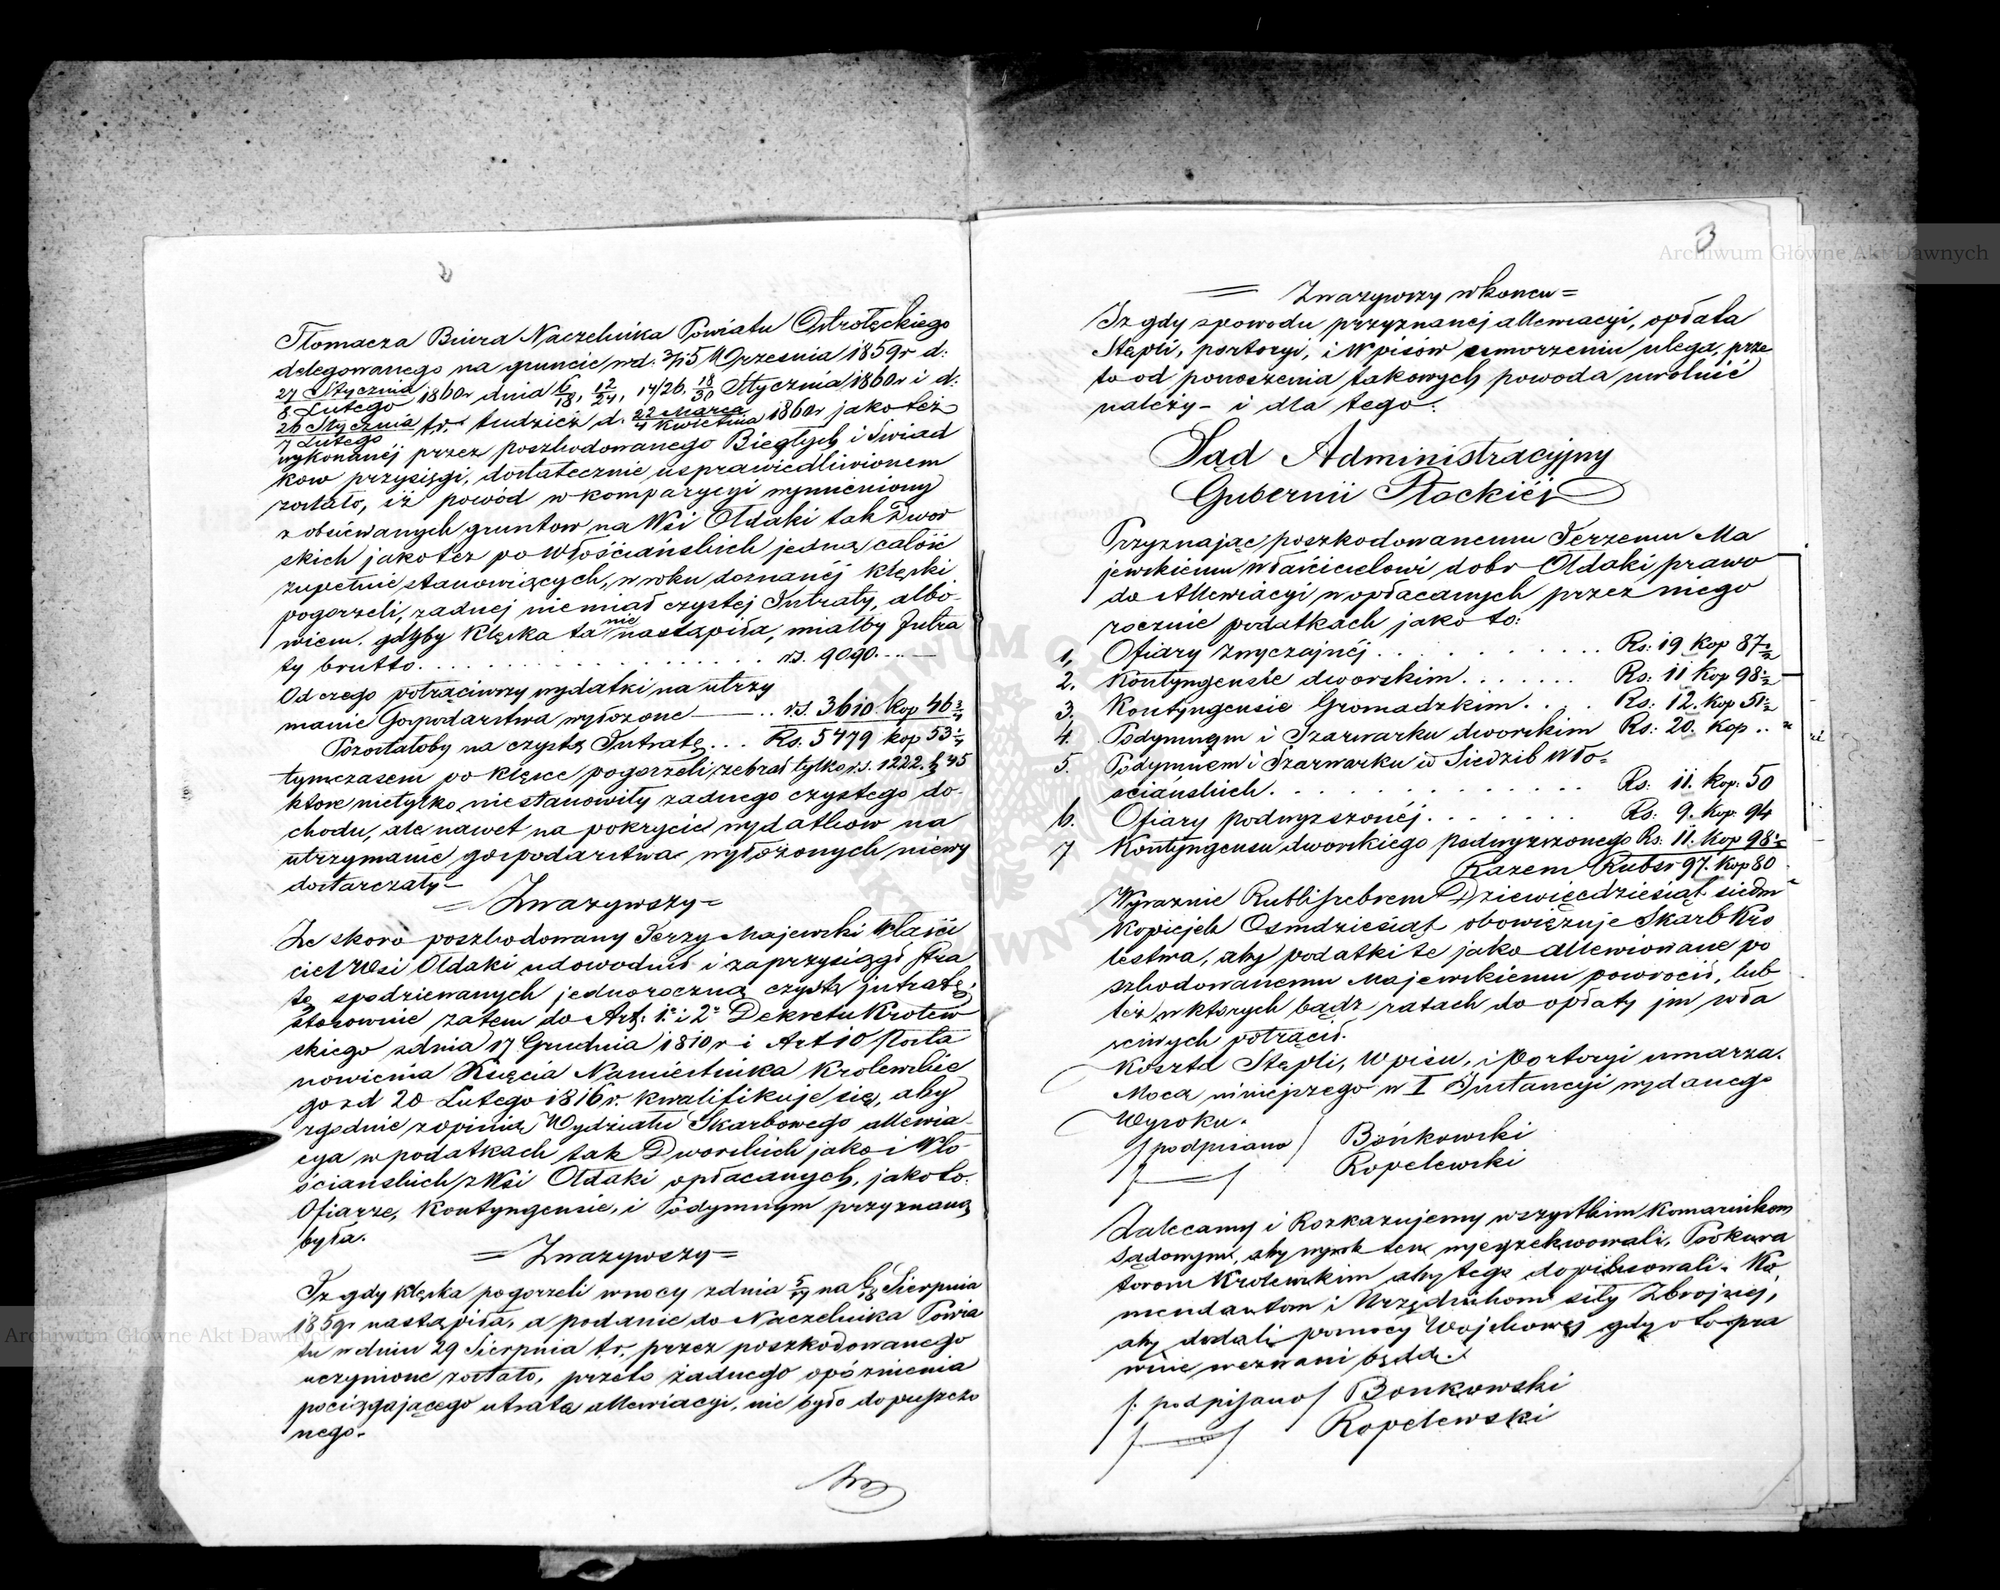 Tłomacza Biura Naczelnika Powiatu Ostrołęckiego
delegowanego na gruncie w d. 3/15 Września 1859r d:
27 Stycznia / 8 Lutego 1860r dnia 6/18, 12/24, 14/26, 18/30 Stycznia 1860r i d:
26 Stycznia / 7 Lutego t.r. tudzież d. 22 Marca / 4 Kwietnia 1860r jakoteż
wykonanéj przez poszkodowanego Biegłych i Swiad
kow przysięgi, dostatecznie usprawiedliwionem
zostało, iż powód w komparycyi wymieniony
z obsiewanych gruntow na Wsi Ołdaki tak Dwor
skich jakoteż po Włościańskich jedną całość
zupełnie stanowiących, w roku doznanéj klęski
pogorzeli, zadnej niemiał czystej Intraty, albo-
wiem, gdyby klęska ta nie nastąpiła, miałby Intra
ty brutto . . . . . rs. 9090. - - -
Od czego potrąciwszy wydatki na utrzy
manie Gospodarstwa wyłozone — rs. 3610. kop 46 3/4
Pozostałoby na czystą Intratę . . . Rs: 5479 kop 53 1/4
tymczasem po klęsce pogorzeli zebrał tylko rs. 1222. k 45
ktore nietylko niestanowiły zadnego czystego do-
chodu, ale nawet na pokrycie wydatkow na
utrzymanie gospodarstwa wyłożonych niewy
dostarczały -
= Zwazywszy =
Ze skoro poszkodowany Jerzy Majewski Właści
ciel Wsi Ołdaki udowodnił i zaprzysiągł stra
tę spodziewanych jednoroczną czystą jntratę;
stosownie zatem do Art: 1º i 2º Dekretu Krolew
skiego z dnia 17 Grudnia 1810 r i Art 10 Posta
nowienia Xięcia Namiestnika Krolewskie
go z d 20 Lutego 1816 r. kwalifikuje się, aby
zgodnie z opinią Wydziału Skarbowego allewia-
cya w podatkach tak Dworskich jako i Wło
ścianskich z Wsi Ołdaki opłacanych, jako to:
Ofiarze, Kontyngensie, i Podymnym przyznaną
była.
= Zwazywszy =
Iz gdy klęska pogorzeli w nocy z dnia 5/17 na 6/18 Sierpnia
1859r nastąpiła, a podanie do Naczelnika Powia
tu w dniu 29 Sierpnia t.r. przez poszkodowanego
uczynione zostało, przeto żadnego opóznienia
pociągającego utratę allewiacyi, nie było dopuszczo
nego.
3
= Zwazywszy w koncu =
Iz gdy z powodu przyznanej allewiacyi, opłata
Stępli, portoryi, i Wpisów umorzeniu ulega, prze
to od ponoszenia takowych powoda uwolnić
należy - i dla tego:
Sąd Administracyjny
Gubernii Płockiéj
Przyznając poszkodowanemu Jerzemu Ma
jewskiemu Właścicielowi dobr Ołdaki prawo
do allewiacyi w opłacanych przez niego
rocznie podatkach jako to:
1, Ofiary zwyczajnéj . . . . . Rs: 19 kop 87 1/2
2. Kontyngensie dworskim . . . . . Rs: 11 kop 98 1/2
3. Kontyngensie Gromadzkim . . . . Rs: 12. kop 51 1/2
4. Podymnym i Szarwarku dworskim Rs: 20. kop . . "
5. Podymnem i Szarwarku w Siedzib Wło-
ściańskich . . . . . Rs: 11. kop: 50
6. Ofiary podwyzszonéj . . . . . Rs: 9. kop 94
7 Kontyngensu dworskiego podwyzszonego Rs. 11. kop 98 1/2
Razem Rubsr 97. kop 80
Wyraznie Rubli srebrem Dziewięcdziesiąt siedm
kopiejek Osmdziesiąt obowięzuje Skarb Kro
lestwa, aby podatki te jako allewiowane po
szkodowanemu Majewskiemu powrócił, lub
też w ktorych bądz ratach do opłaty jm wła
sciwych potrącił.
Koszta Stępli, Wpisu, i Portoryi umarza.
Mocą niniejszego w I Instancyi wydanego
Wyroku.
/ podpisano / Bońkowski
/ — / Ropelewski
Zalecamy i Rozkazujemy wszystkim Komornikom
Sądowym, aby wyrok ten wyegzekwowali. Prokura
torom Krolewskim aby tego dopilnowali. Ko
mendantom i Urzędnikom siły Zbrojnéj,
aby dodali pomocy Wojskowej gdy o to pra
wnie wezwani będą.
/: podpisano / Bonkowski
/ — / Ropelewski
Archiwum Główne Akt Dawnych
Archiwum Główne Akt Dawnych